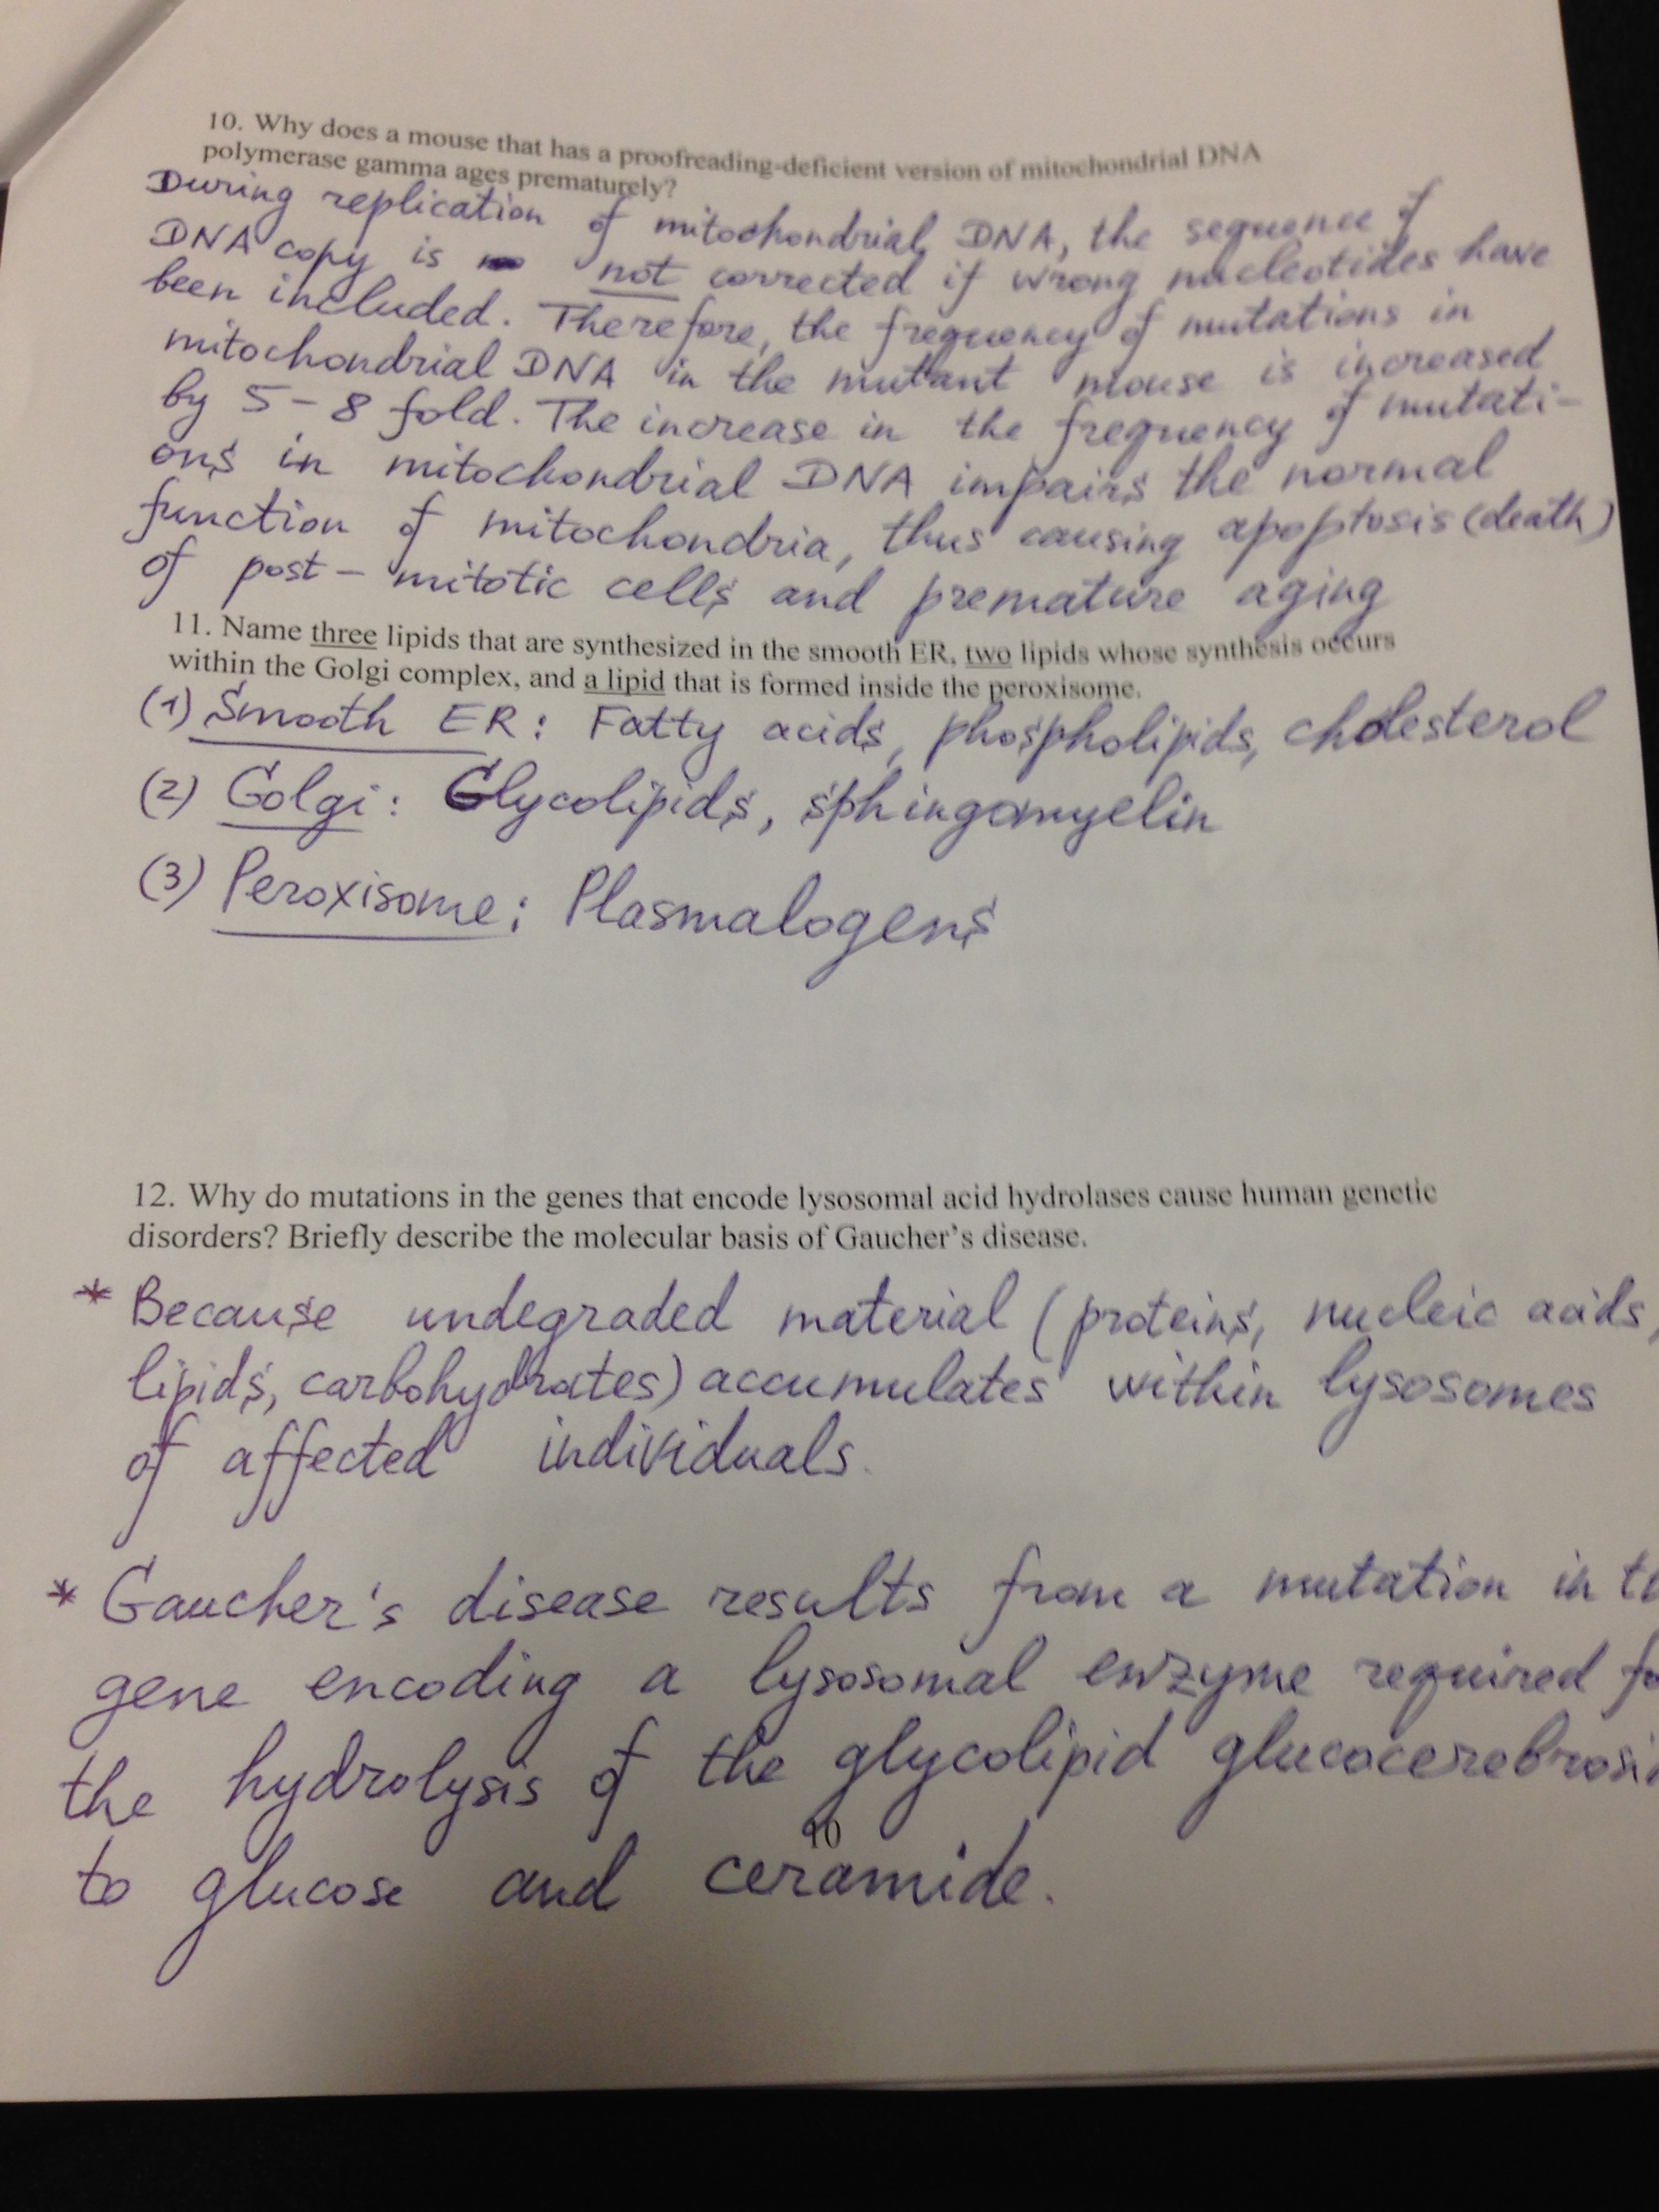 10. Why does a mouse that has a proofreading-deficient version of mitochondrial DNA
polymerase gamma ages prematurely?
During replication of mitochondrial DNA, the sequence of
DNA copy is not corrected if wrong nucleotides have
been included. Therefore, the frequency of mutations in
mitochondrial DNA in the mutant mouse is increased
by 5-8 fold. The increase in the frequency of mutati-
ons in mitochondrial DNA impairs the normal
function of mitochondria, thus causing apoptosis (death)
of post-mitotic cells and premature aging
11. Name three lipids that are synthesized in the smooth ER, two lipids whose synthesis occurs
within the Golgi complex, and a lipid that is formed inside the peroxisome.
(1) Smooth ER: Fatty acids, phospholipids, cholesterol
(2) Golgi: Glycolipids, sphingomyelin
(3) Peroxisome: Plasmalogens
12. Why do mutations in the genes that encode lysosomal acid hydrolases cause human genetic
disorders? Briefly describe the molecular basis of Gaucher's disease.
* Because undegraded material (proteins, nucleic acids,
lipids, carbohydrates) accumulates within lysosomes
of affected individuals.
* Gaucher's disease results from a mutation in
gene encoding a lysosomal enzyme required
the hydrolysis of the glycolipid
10
to glucose and ceramide.